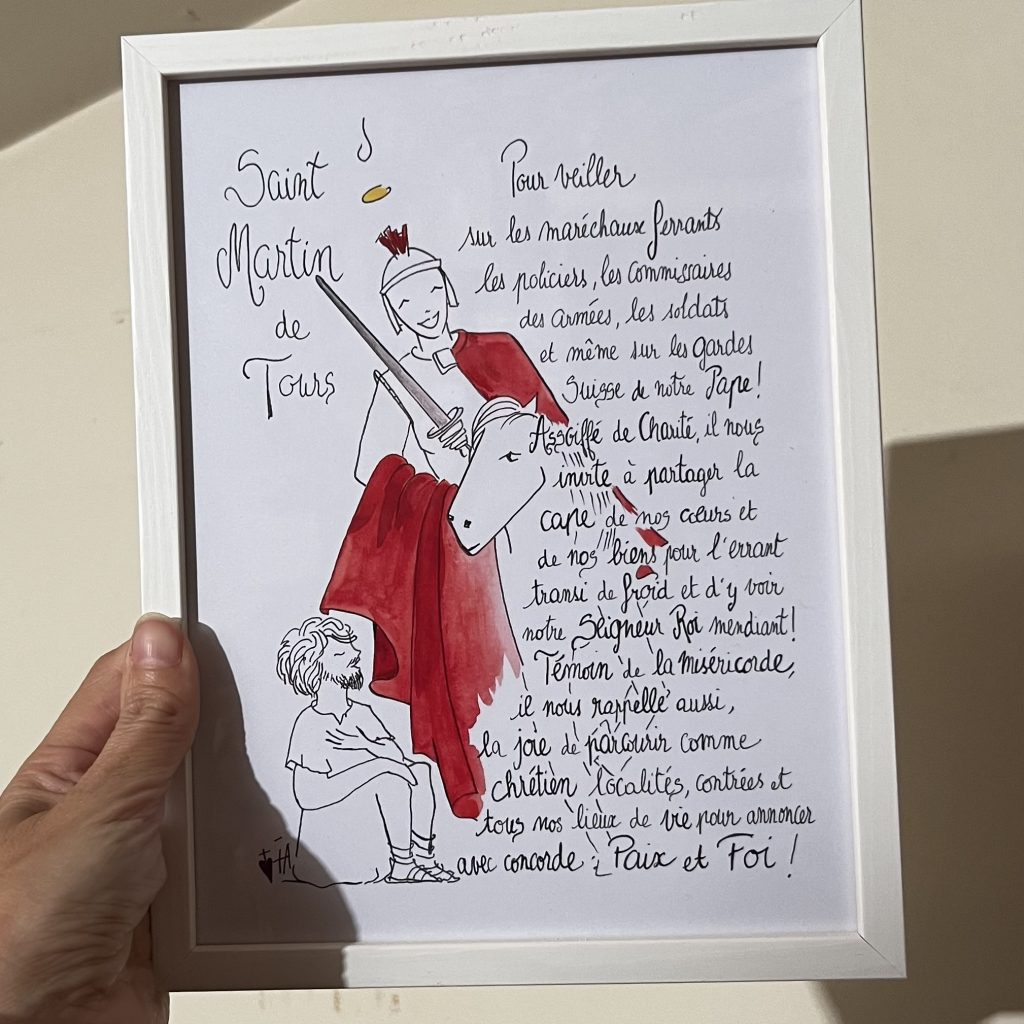 Saint
Martin
de
Tours
Pour veiller
sur les maréchaux ferrants
les policiers, les commissaires
des armées, les soldats
et même sur les gardes
Suisse de notre Pape!
Assoiffé de Charité, il nous
invite à partager la
cape de nos cœurs et
de nos biens pour l'errant
transi de froid et d'y voir
notre Seigneur Roi mendiant!
Témoin de la miséricorde,
il nous rappelle aussi,
la joie de parcourir comme
chrétien localités, contrées et
tous nos lieux de vie pour annoncer
avec concorde : Paix et Foi !